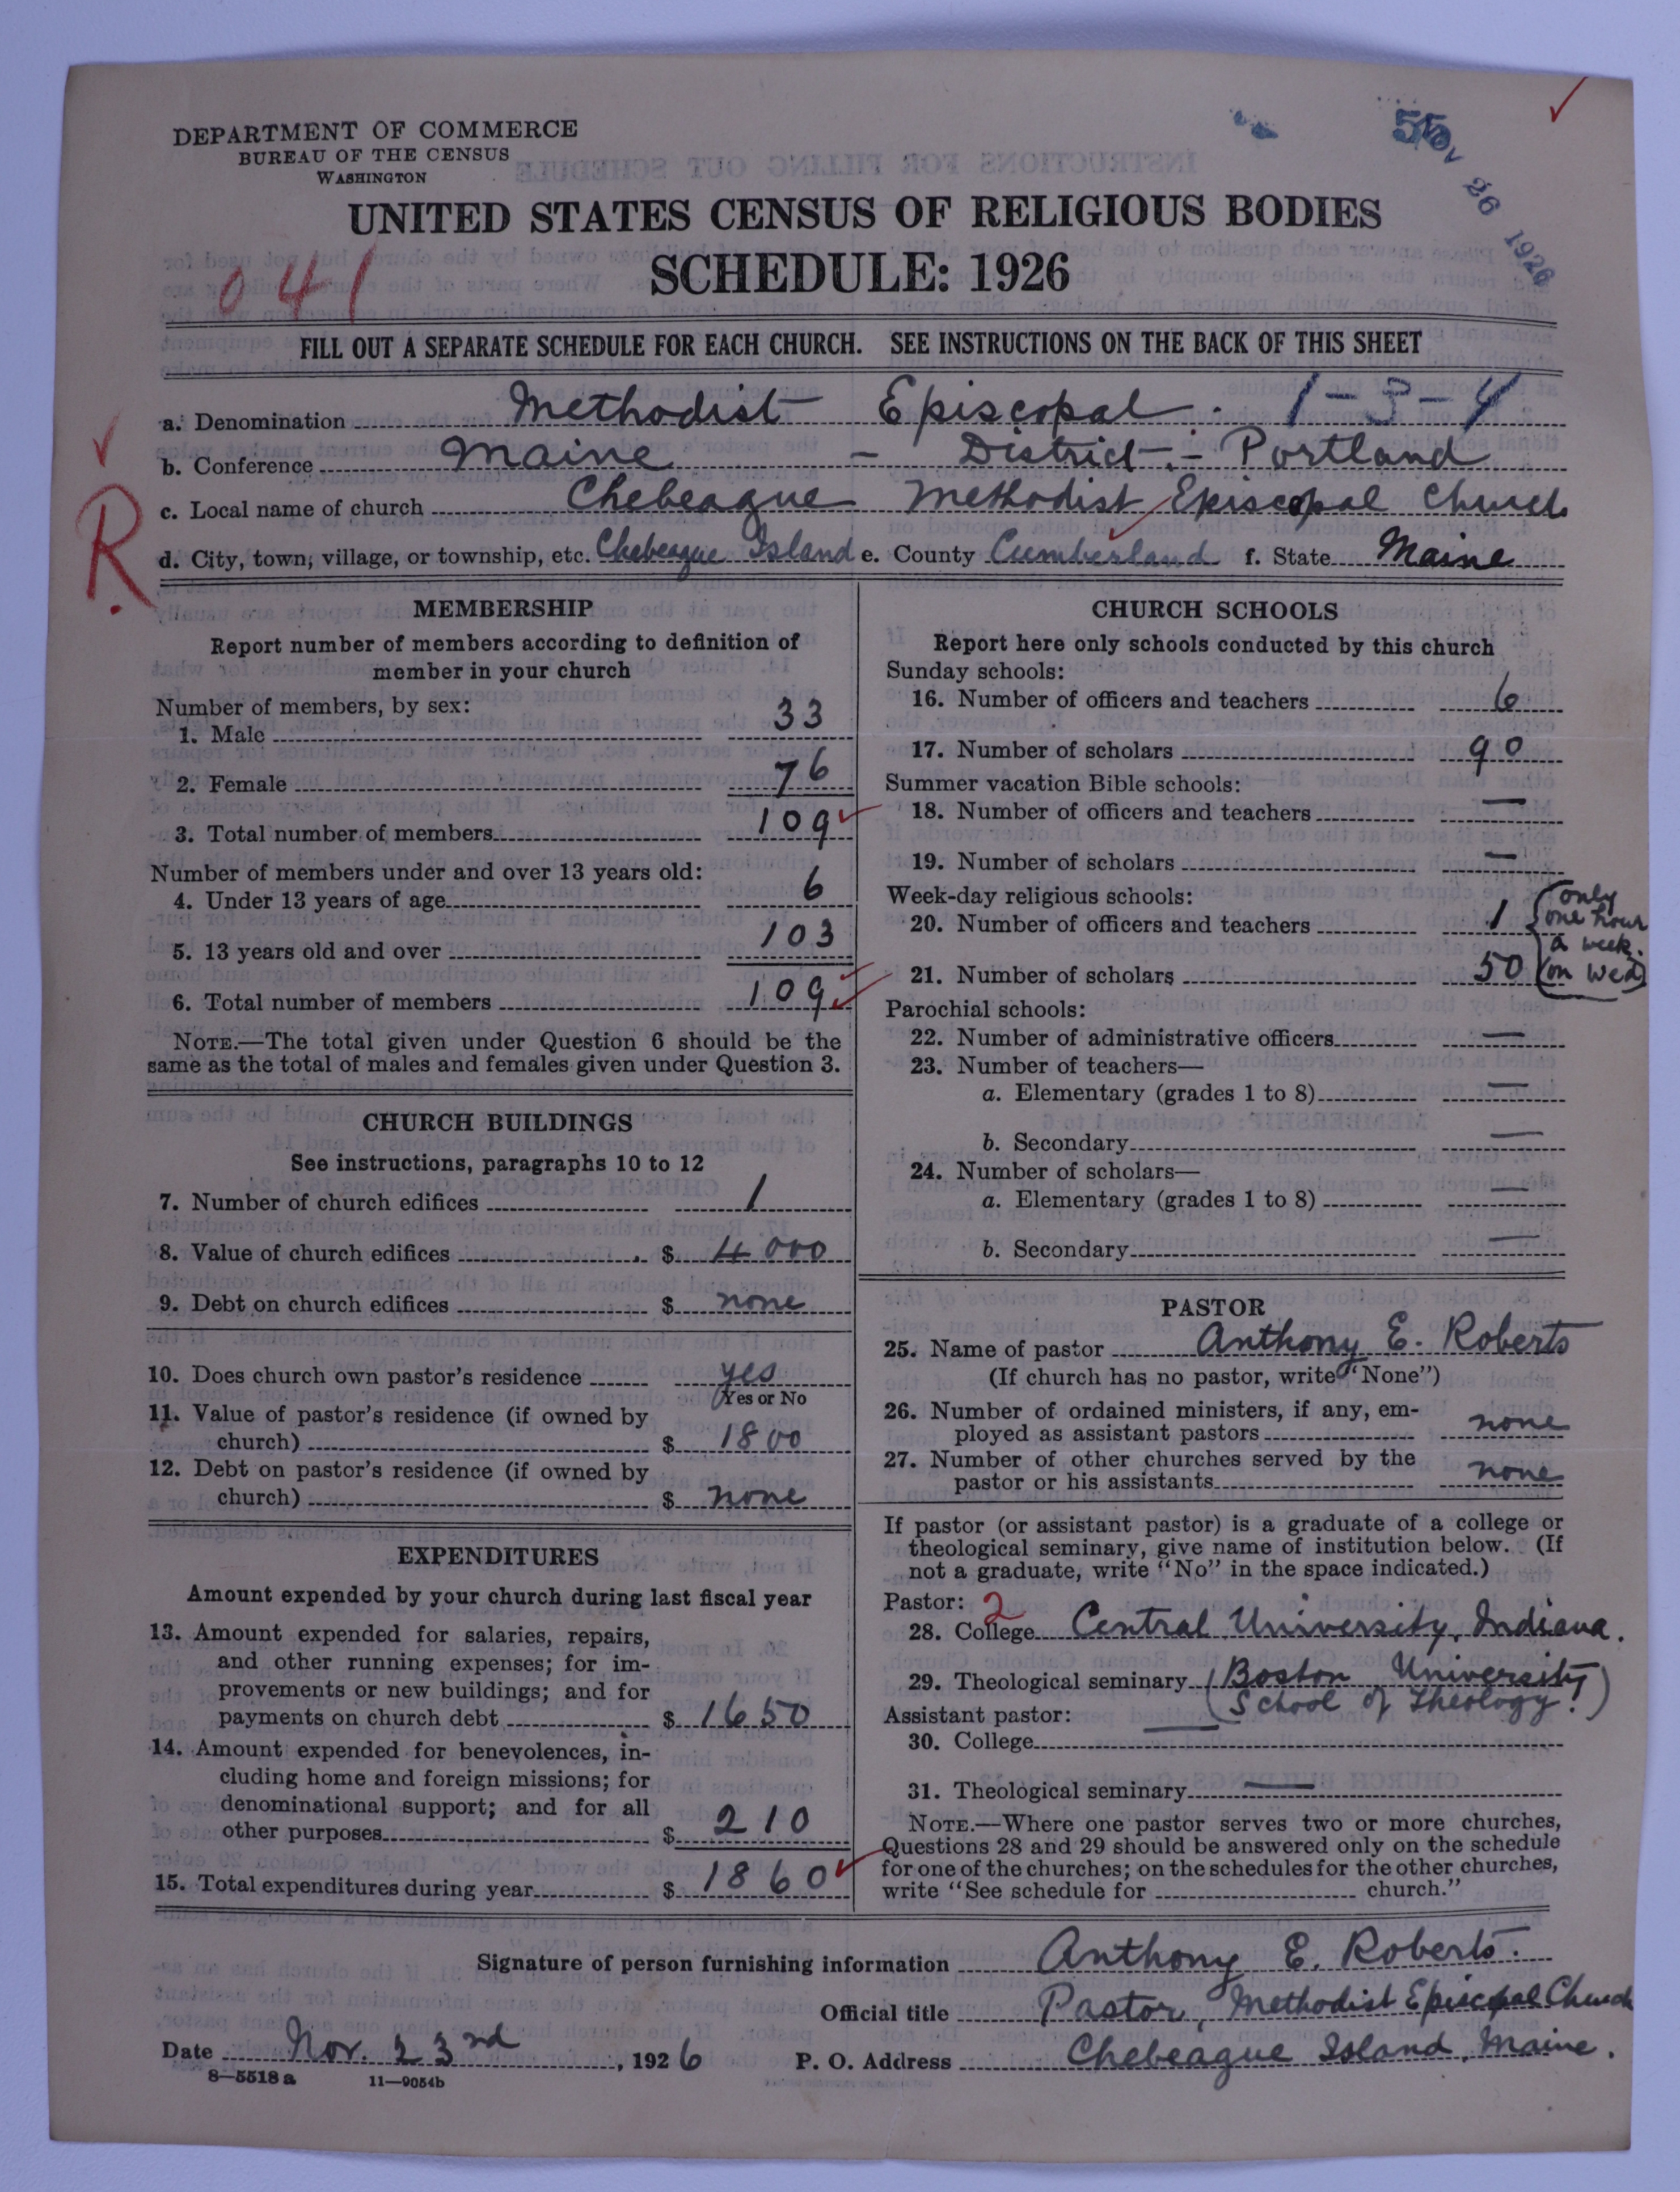 DEPARTMENT OF COMMERCE
BUREAU OF THE CENSUS
WASHINGTON
55
NOV 26 1926
UNITED STATES CENSUS OF RELIGIOUS BODIES
SCHEDULE: 1926
041
FILL OUT A SEPARATE SCHEDULE FOR EACH CHURCH. SEE INSTRUCTIONS ON THE BACK OF THIS SHEET
a. Denomination Methodist Episcopal. 1-3-4
b. Conference Maine - District - Portland
c. Local name of church Chebeague Methodist Episcopal Church
R
d. City, town, village, or township, etc. Chebeague Island e. County Cumberland f. State Maine
MEMBERSHIP
Report number of members according to definition of
member in your church
Number of members, by sex:
1. Male 33
2. Female 76
3. Total number of members 109
Number of members under and over 13 years old:
4. Under 13 years of age 6
5. 13 years old and over 103
6. Total number of members 109
NOTE.—The total given under Question 6 should be the
same as the total of males and females given under Question 3.
CHURCH BUILDINGS
See instructions, paragraphs 10 to 12
7. Number of church edifices 1
8. Value of church edifices $ 4000
9. Debt on church edifices $ none
10. Does church own pastor's residence yes
Yes or No
11. Value of pastor's residence (if owned by
church) $ 1800
12. Debt on pastor's residence (if owned by
church) $ none
EXPENDITURES
Amount expended by your church during last fiscal year
13. Amount expended for salaries, repairs,
and other running expenses; for im-
provements or new buildings; and for
payments on church debt $ 1650
14. Amount expended for benevolences, in-
cluding home and foreign missions; for
denominational support; and for all
other purposes $ 210
15. Total expenditures during year $ 1860
CHURCH SCHOOLS
Report here only schools conducted by this church
Sunday schools:
16. Number of officers and teachers 6
17. Number of scholars 90
Summer vacation Bible schools:
18. Number of officers and teachers —
19. Number of scholars —
Week-day religious schools:
20. Number of officers and teachers 1
21. Number of scholars 50
(only
one hour
a week.
on Wed)
Parochial schools:
22. Number of administrative officers —
23. Number of teachers—
a. Elementary (grades 1 to 8) —
b. Secondary —
24. Number of scholars—
a. Elementary (grades 1 to 8) —
b. Secondary —
PASTOR
25. Name of pastor Anthony E. Roberts
(If church has no pastor, write "None")
26. Number of ordained ministers, if any, em-
ployed as assistant pastors none
27. Number of other churches served by the
pastor or his assistants none
If pastor (or assistant pastor) is a graduate of a college or
theological seminary, give name of institution below. (If
not a graduate, write "No" in the space indicated.)
Pastor: 2
28. College Central University, Indiana.
29. Theological seminary (Boston University
School of Theology!)
Assistant pastor: —
30. College
31. Theological seminary —
NOTE.—Where one pastor serves two or more churches,
Questions 28 and 29 should be answered only on the schedule
for one of the churches; on the schedules for the other churches,
write "See schedule for church."
Signature of person furnishing information Anthony E. Roberts.
Official title Pastor, Methodist Episcopal Church
Date Nov. 23rd, 1926 P. O. Address Chebeague Island, Maine.
8—5518 a 11—9054b